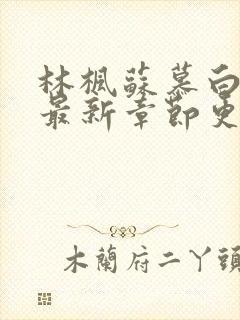 林楓蘇慕白
最新章節更
木蘭府二丫頭